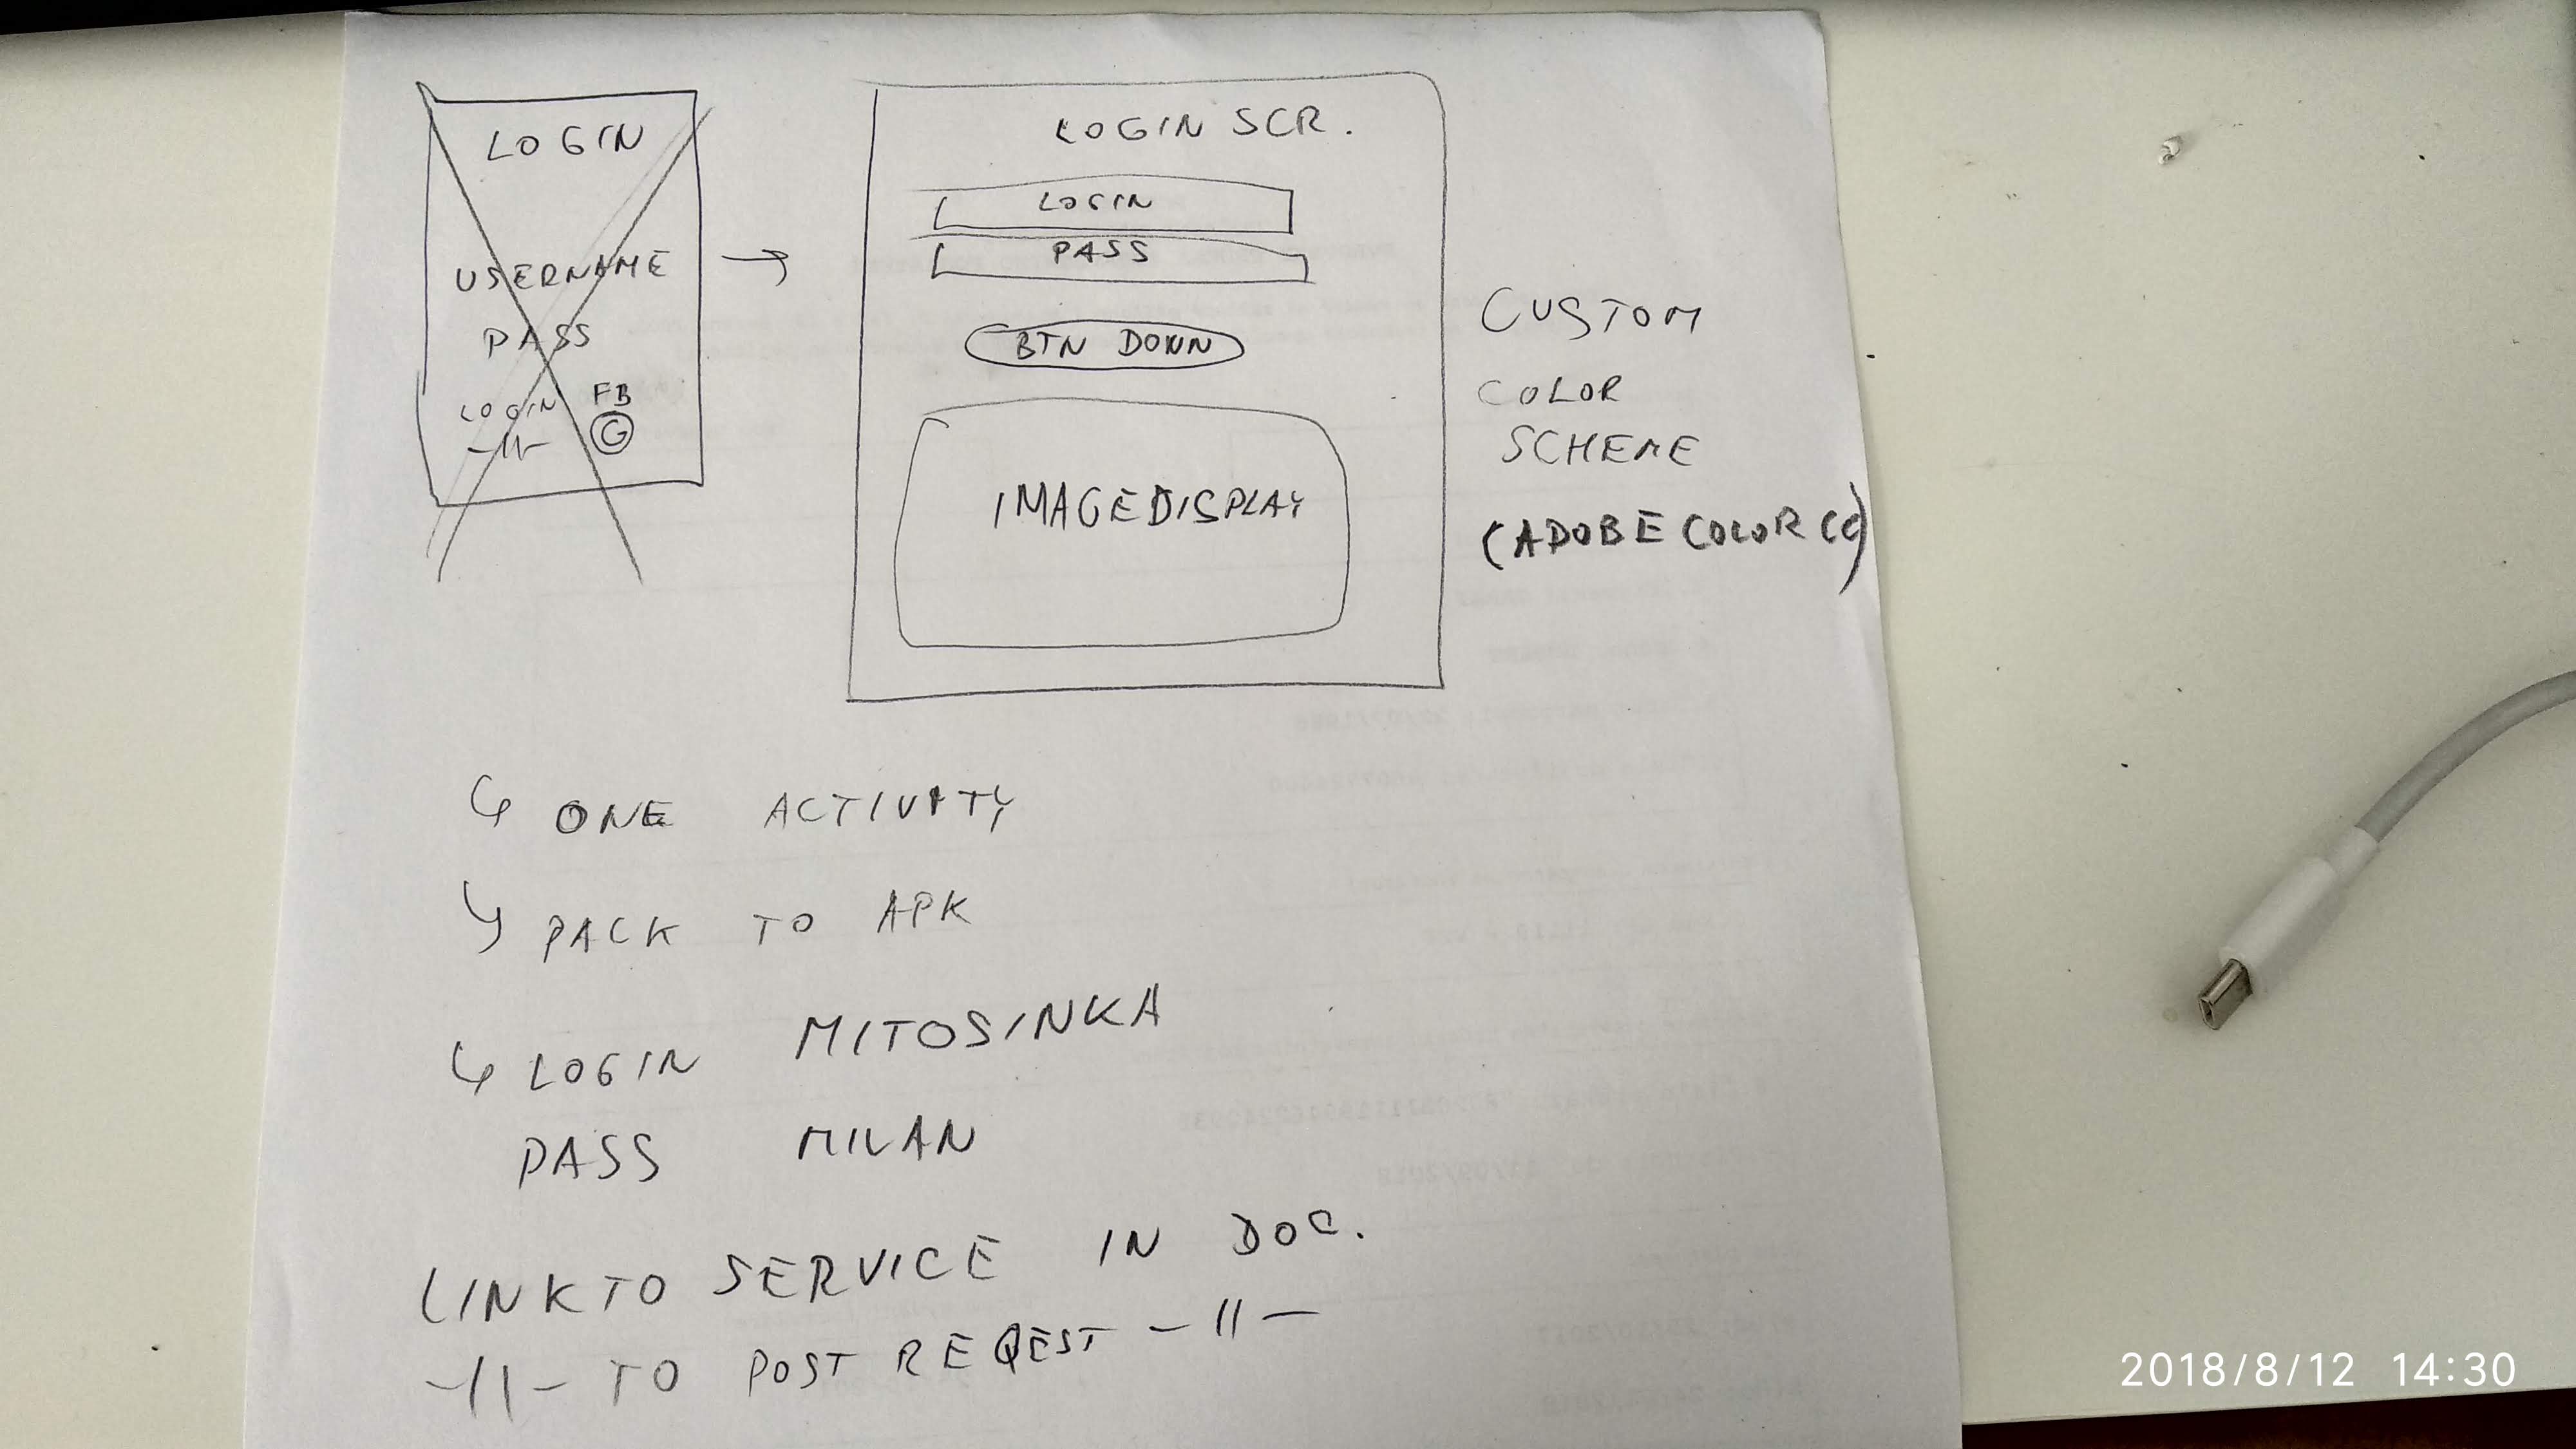 LOGIN
USERNAME
PASS
LOGIN FB
-11- G
LOGIN SCR.
LOGIN
PASS
BTN DOWN
IMAGEDISPLAY
CUSTOM
COLOR
SCHEME
(ADOBE COLOR CC)
ONE ACTIVITY
PACK TO APK
LOGIN MITOSINKA
PASS MILAN
LINK TO SERVICE IN DOC.
-11- TO POST REQEST -11-
2018/8/12 14:30